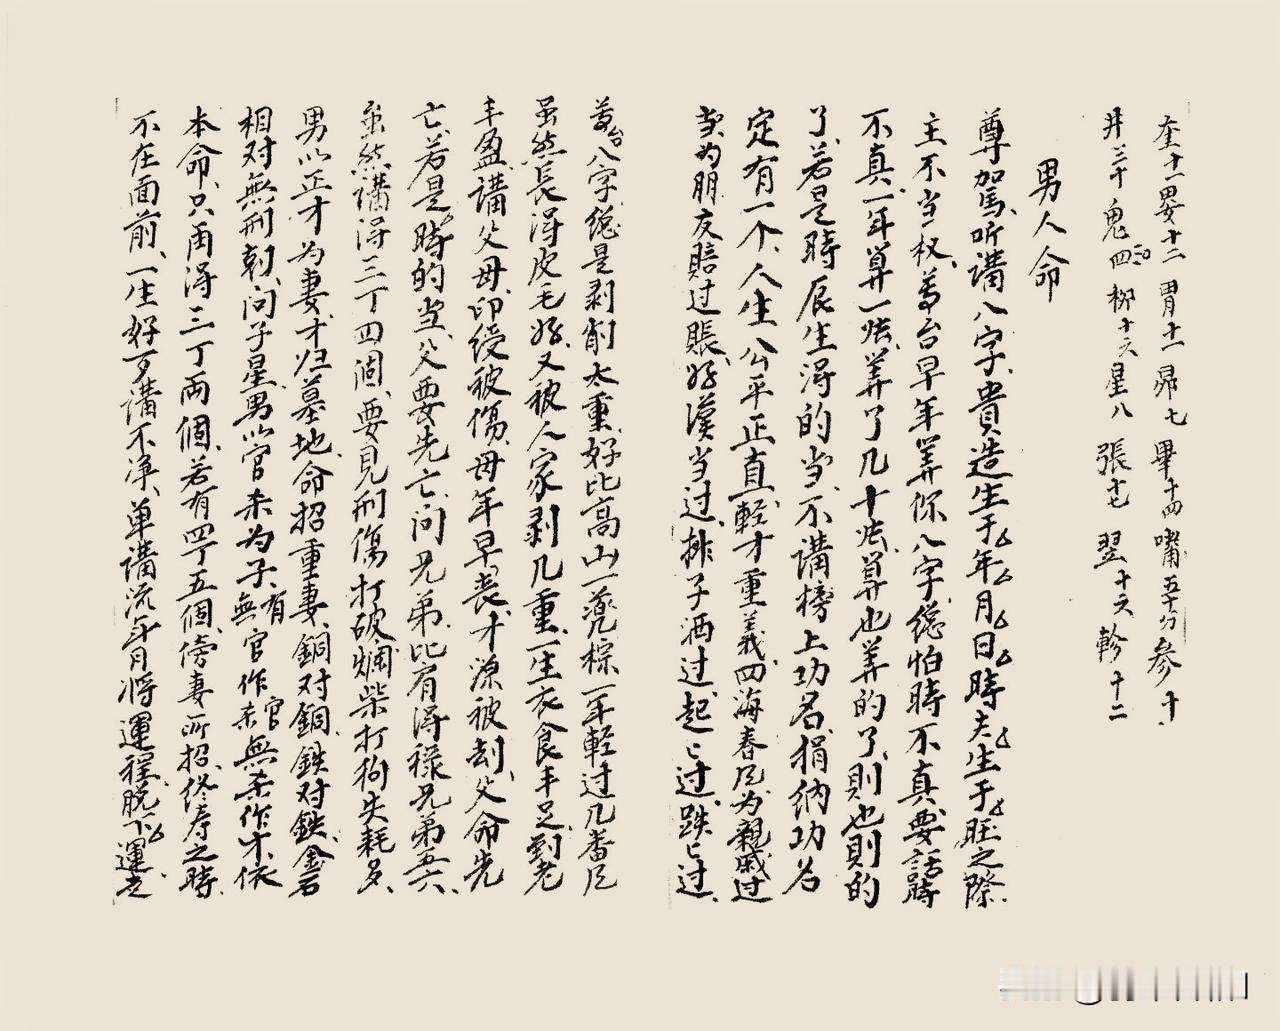 奎十一 婁十二 胃十一 昴七 畢十四 嘴五十分 参十
井三十 鬼四 柳十六 星八 張十七 翌十六 軫十二
男人命
尊駕听講八字、貴造生于年月日時、夫生于旺之際
主不当权、尊台早年算你八字、総怕時不真、要話時
不真、一年算一㳒、算了几十㳒、算也算的了、則也則的
了、若是時辰生得的当、不講榜上功名、捐纳功名
定有一个、人生公平正直、輕才重義、四海春风、为親戚过
为朋友賠过賬、好漢当过、排子洒过、起〻过、跌〻过、
尊台八字、総是剥削太重、好比高山一蔸棕、一年輕过几番风
虽然長得皮毛好、又被人家剥几重、一生衣食丰足、到老
丰盈、講父母、印绶被傷、母年早丧、才源被刦、父命先
亡、若是時的当、父要先亡、问兄弟、比肩得祿、兄弟五六、
虽然講得三丁四個、要見刑傷、打破烟柴打狗失耗多、
男以正才为妻、才归墓地、命招重妻、銅对銅、鉄对鉄、金石
相对無刑尅、问子星、男以官杀为子、有官作官無官作杀、無杀作才、依
本命、只甬得三丁兩個、若有四丁五個、傍妻所招、终寿之時
不在面前、一生好歹講不净、单講流年月将運程脱下運走